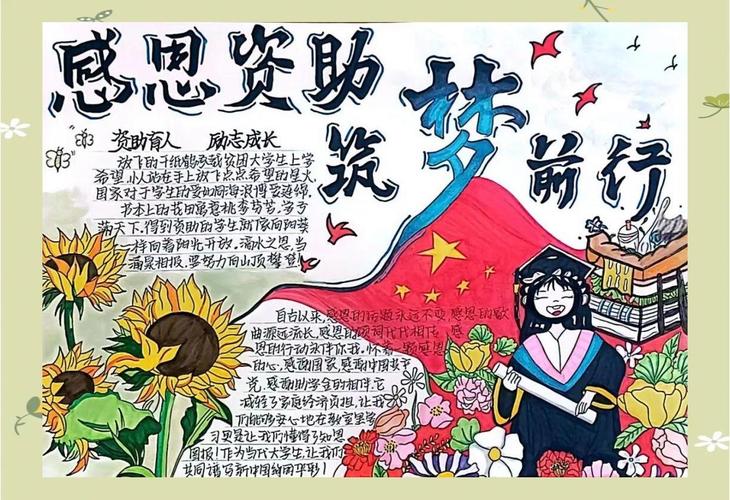 感恩资助
筑梦前行
资助育人 励志成长
放飞的千纸鹤承载贫困大学生上学
希望,小人站在手上放飞点点希望的星火,
国家对于学生的爱如海浪博爱连绵,
书本上的花田寓意桃李芬芳,学子
满天下,得到资助的学生就像向阳葵
一样向着阳光开放,滴水之恩,当
涌泉相报,要努力向山顶攀登!
自古以来,感恩的话题永远不变,感恩的歌
曲源远流长,感恩的颂词代代相传,感
恩的行动永伴你我,怀着一颗感恩
的心,感恩国家,感恩中国共产
党,感恩助学金的相伴,它
减轻了家庭经济负担,让我
们能够安心地在教室里学
习,更是让我们懂得了知恩
图报!作为当代大学生,让我们
共同谱写新中国的华彩!